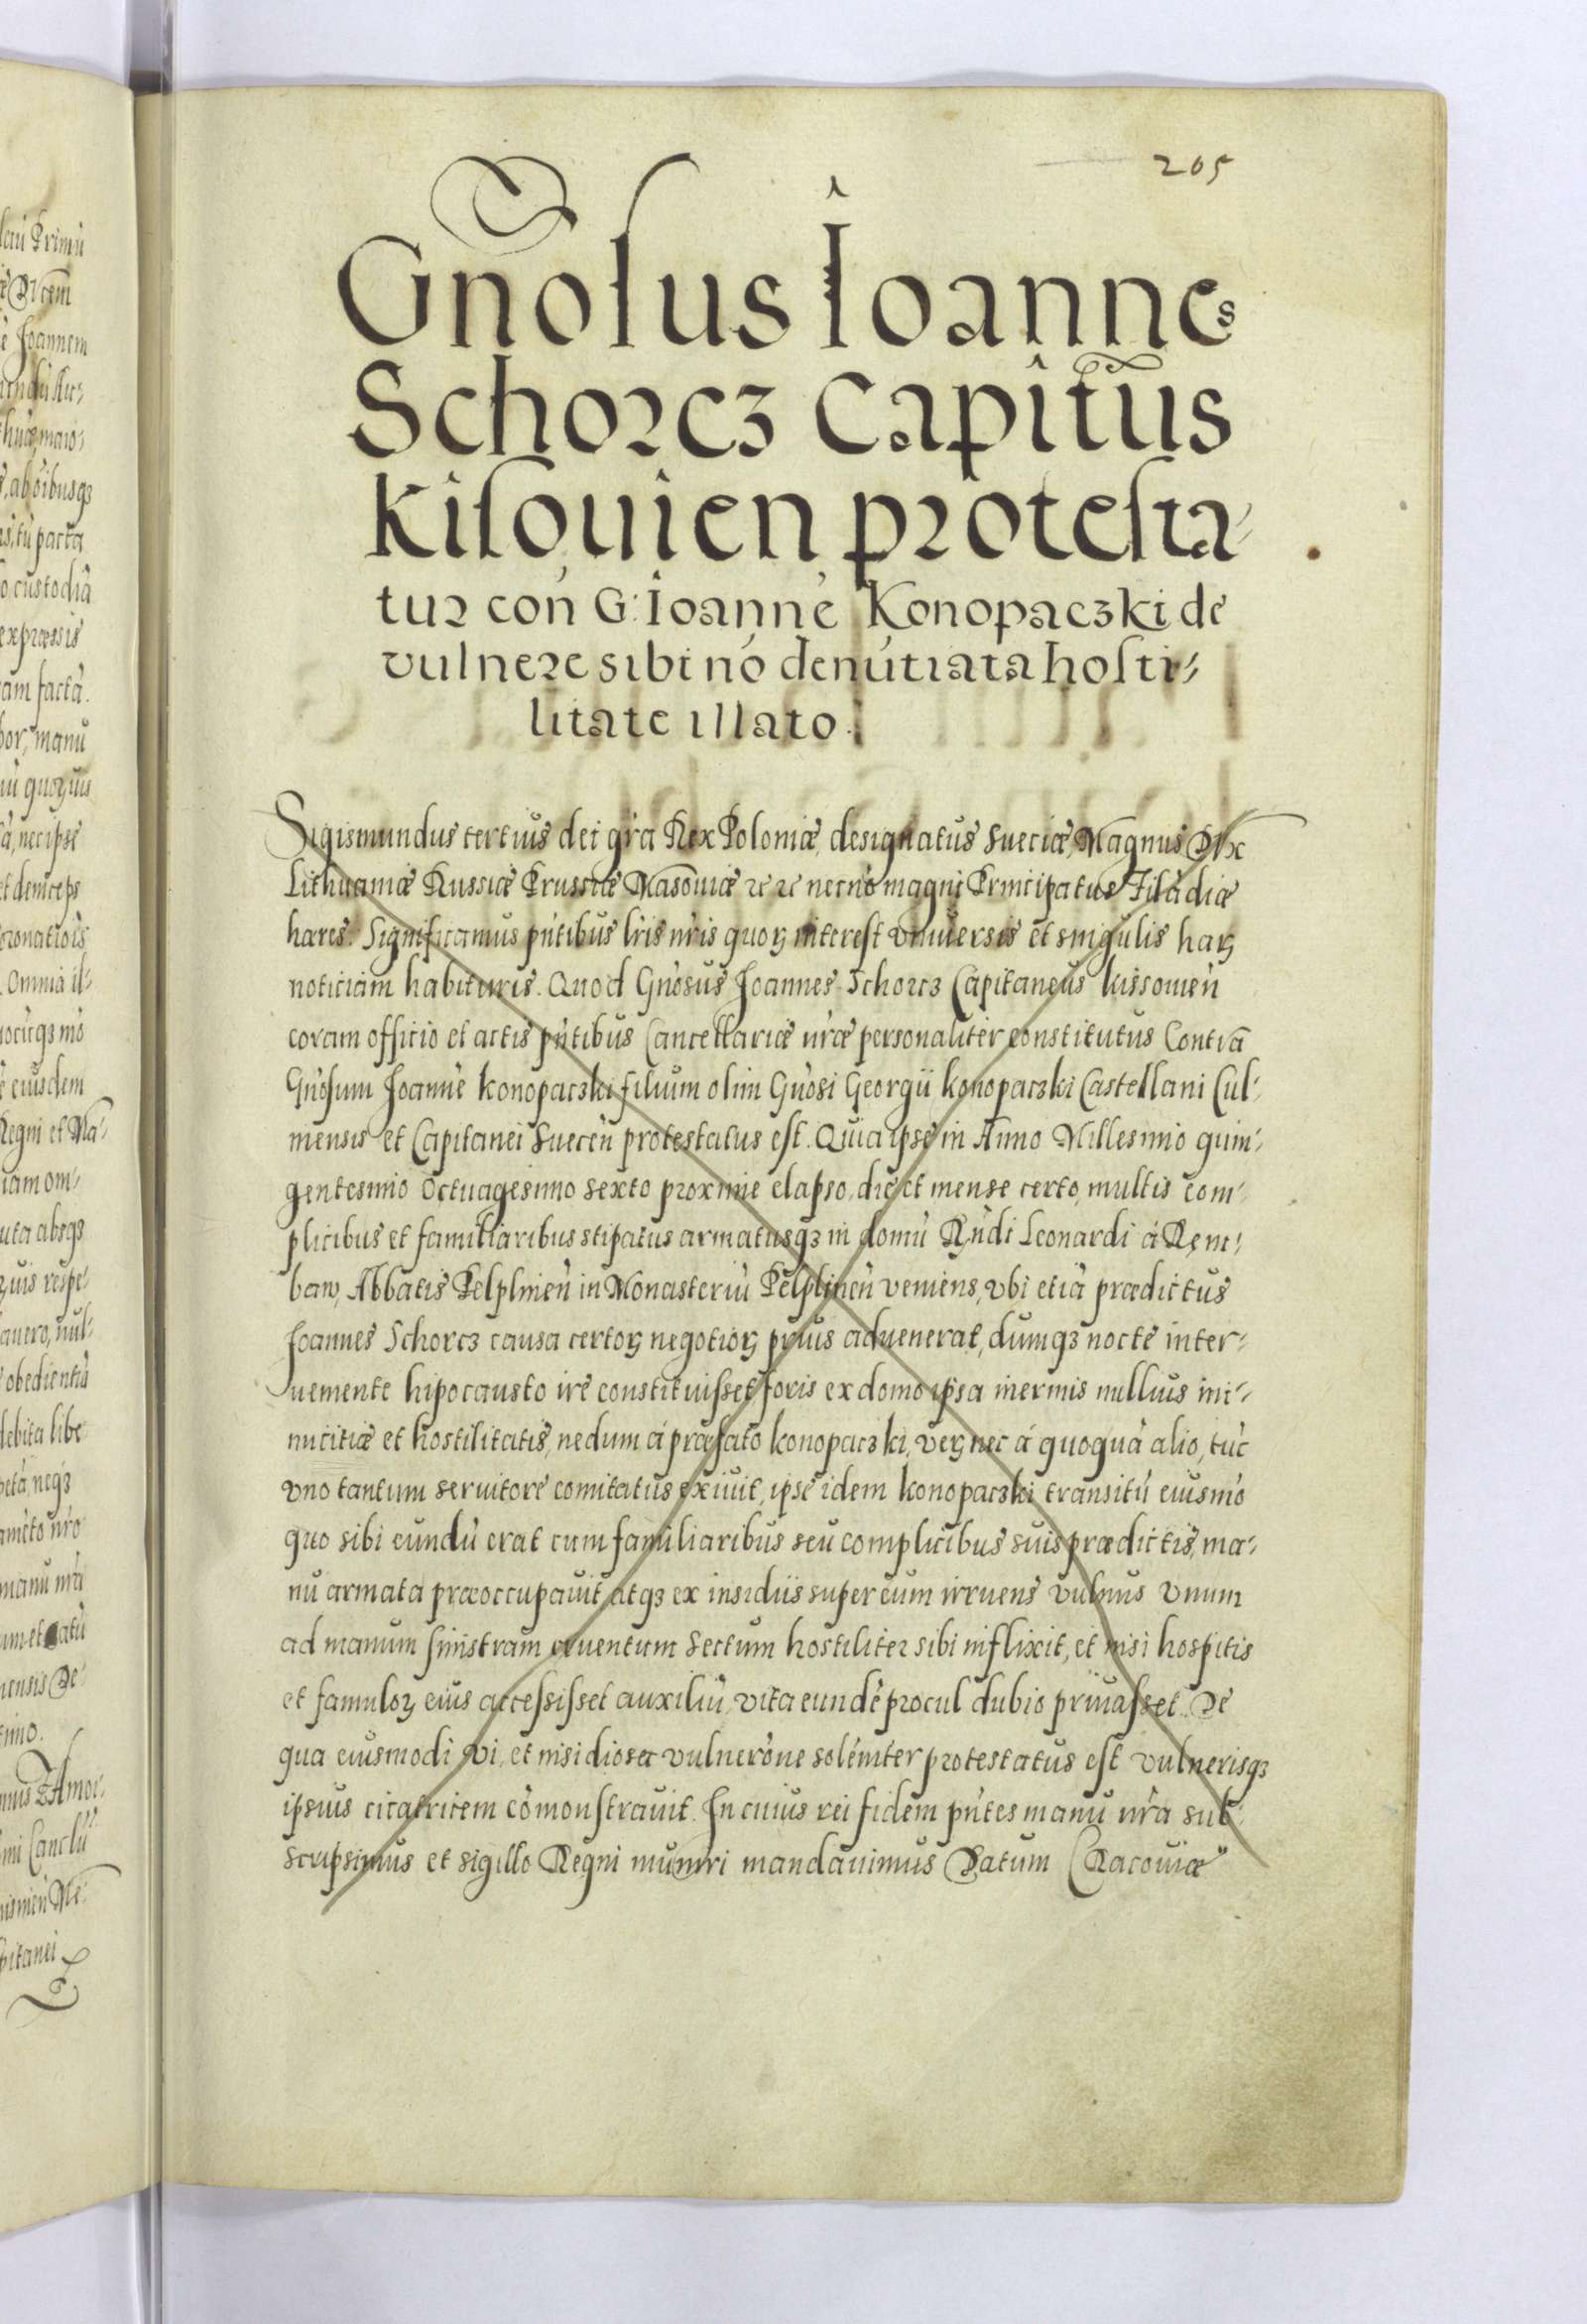 205
Gnosus Ioannes
Schorcz Capitus
kisouien protesta-
tur con G: Ioanne Konopaczki de
vulnere sibi no denutiata hosti-
litate illato.
Sigismundus tertius dei gra Rex Poloniæ, designatus Sueciæ, Magnus Dux
Lithuaniæ Russiæ Prussiæ Masouiæ etc etc necno magni Principatus Filadiæ
hæres. Significamus pntibus lris nris quorum interest vniuersis et singulis harum
noticiam habituris. Quod Gnosus Joannes Schorcz Capitaneus kissouien
coram officio et actis pntibus Cancellariæ nræ personaliter constitutus Contra
Gnosum Joanne konopaczki filium olim Gnosi Georgii konopaczki Castellani Cul-
mensis et Capitanei Suecen protestatus est. Quia ipse in Anno Millesimo quin-
gentesimo octuagesimo sexto proxime elapso, die et mense certo, multis com-
plicibus et familiaribus stipatus armatusqz in domu Rndi Leonardi á Rem-
baw, Abbatis Pelplinen in Monasteriu Pelplinen veniens, vbi etia prædictus
Joannes Schorcz causa certorum negotiorum prius aduenerat, dumqz nocte inter-
ueniente hipocausto ire constituisset foris ex domo ipsa inermis nullius ini-
micitiæ et hostilitatis, nedum á præfato konopaczki, verum nec á quoqua alio, tuc
vno tantum seruitore comitatus exiuit, ipse idem konopaczki transitu eiusmo
quo sibi eundu erat cum familiaribus seu complicibus suis prædictis, ma-
nu armata præoccupauit atqz ex insidiis super eum irruens vulnus vnum
ad manum sinistram cruentum sectum hostiliter sibi inflixit, et nisi hospitis
et famulorum eius accessisset auxiliu, vita eunde procul dubio priuasset. De
qua eiusmodi vi, et insidiosa vulnerone solemniter protestatus est vulnerisqz
ipsius cicatricem comonstrauit. In cuius rei fidem pntes manu nra sub-
scripsimus et sigillo Regni muniri mandauimus Datum Cracouiæ